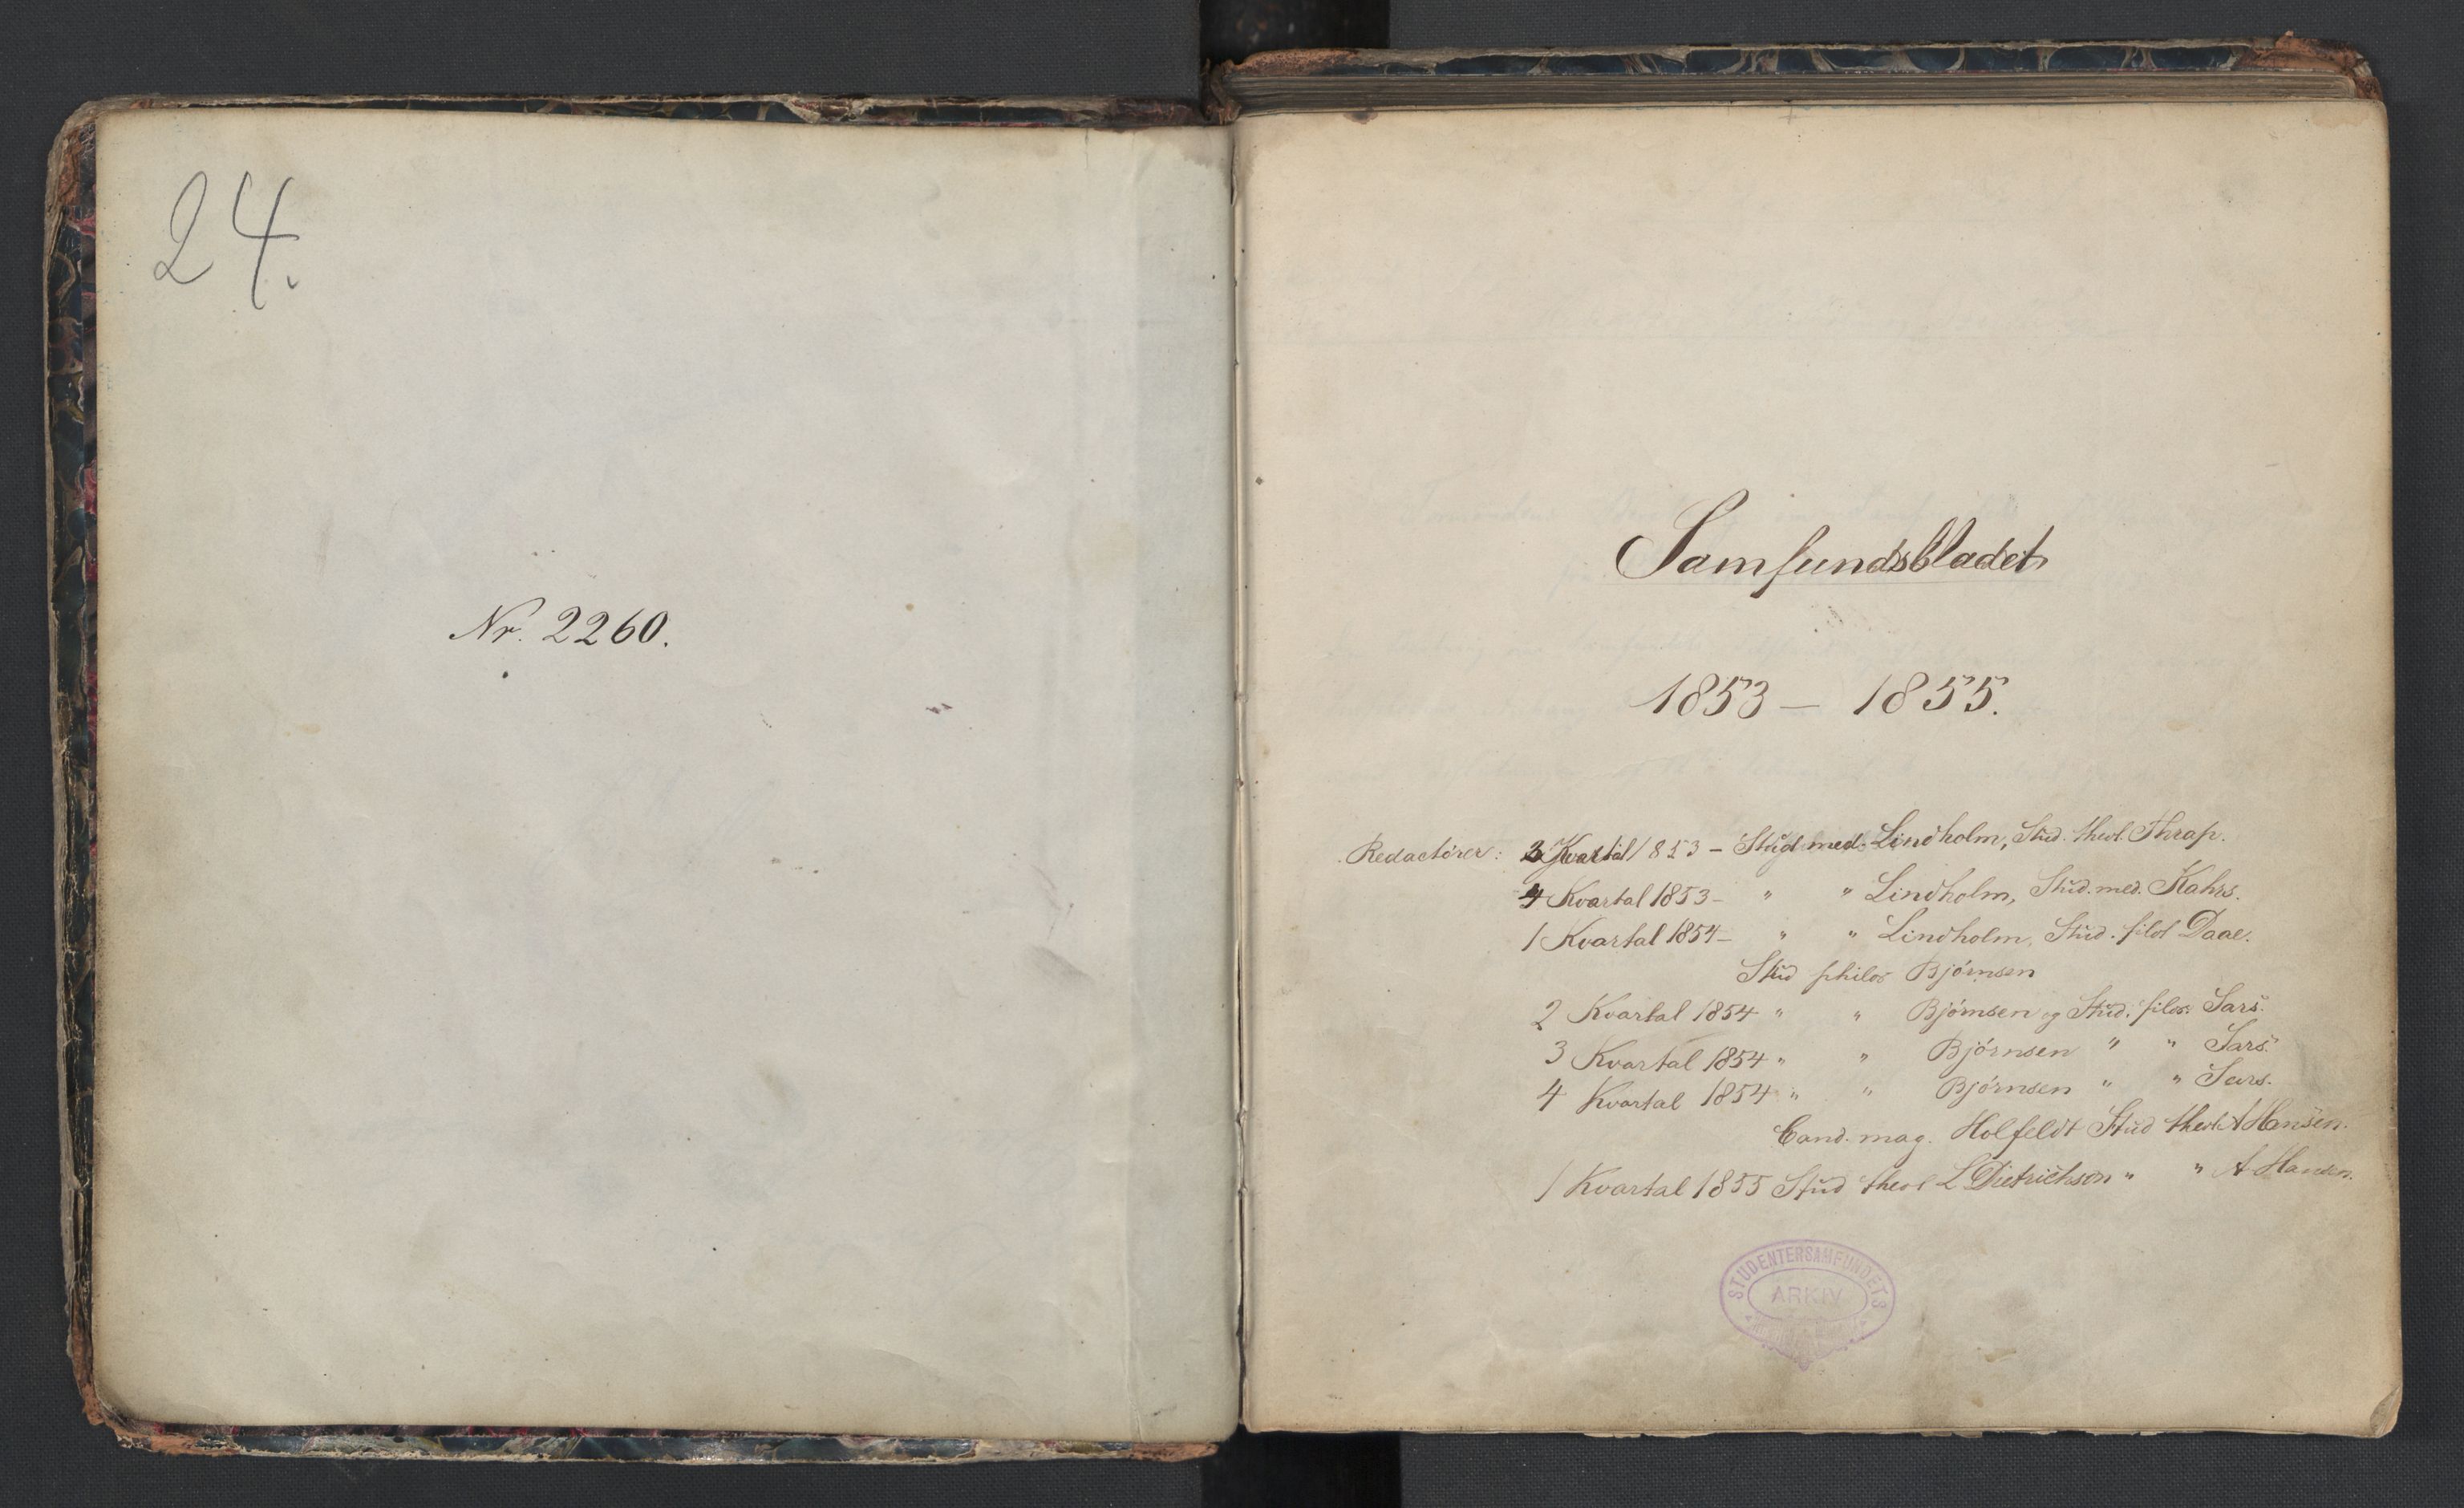 24.
Nr. 2260.
Samfundsbladet
1853 – 1855.
Redactörer: 3 Kvartal 1853 – Stud. med. Lindholm, Stud. theol. Thrap.
4 Kvartal 1853 – " " Lindholm, Stud. med. Kahrs.
1 Kvartal 1854 – " " Lindholm, Stud. filol Daae.
Stud philos Bjørnsen
2 Kvartal 1854 " " Bjørnsen og Stud. filos. Sars.
3 Kvartal 1854 " " Bjørnsen " " Sars.
4 Kvartal 1854 " " Bjørnsen " " Sars.
Cand. mag. Holfeldt Stud theol. A Hansen.
1 Kvartal 1855 Stud theol L Dietrichson " " A Hansen.
STUDENTERSAMFUNDETS
ARKIV